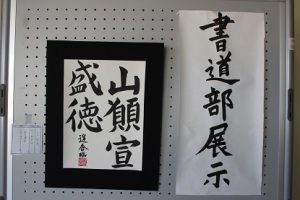 書道部展示
山顛宣
盛徳